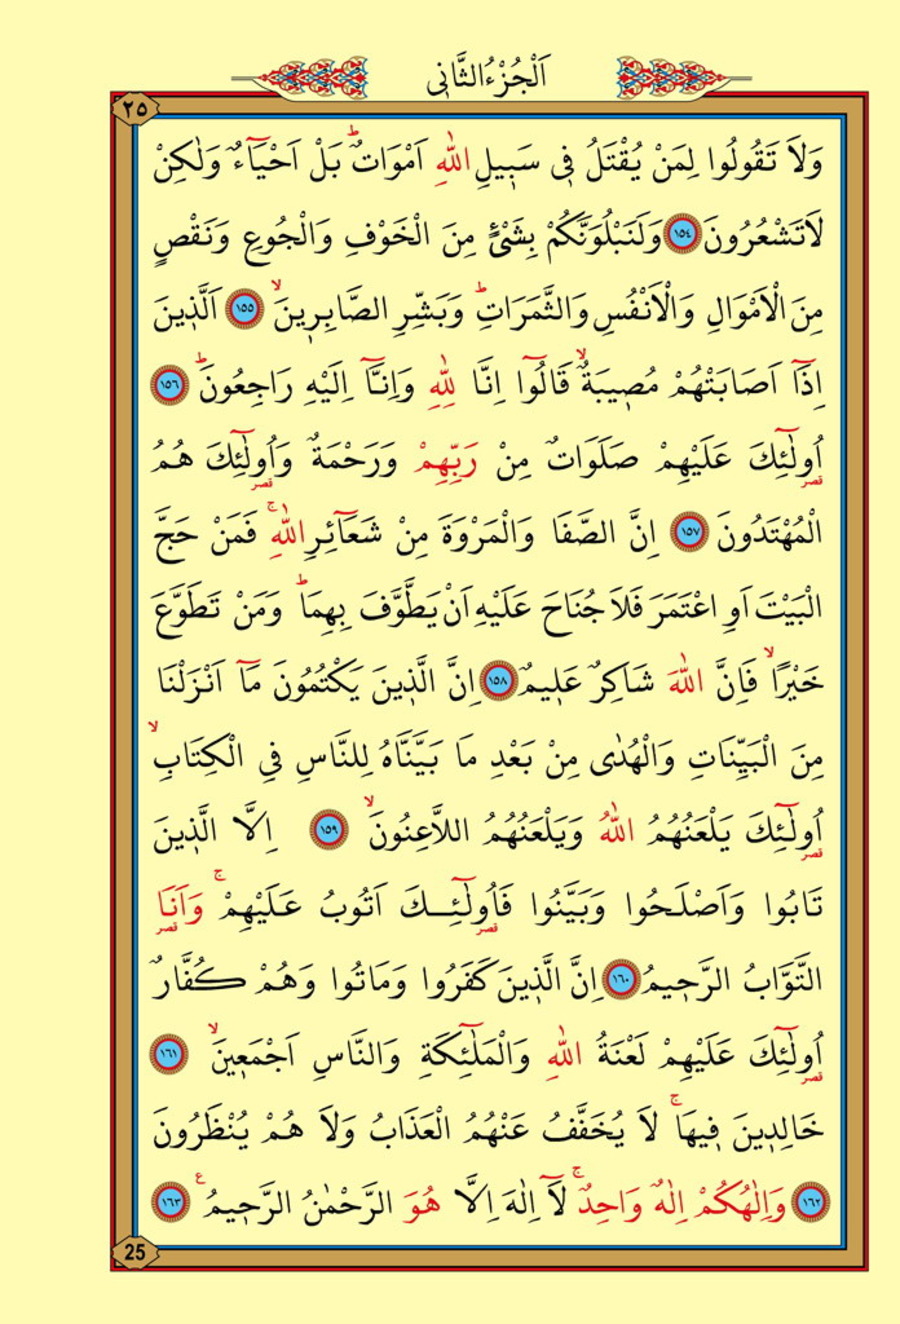 اَلْجُزْءُ الثَّانٖى
٢٥
وَلَا تَقُولُوا لِمَنْ يُقْتَلُ فٖى سَبٖيلِ اللّٰهِ اَمْوَاتٌؕ بَلْ اَحْيَٓاءٌ وَلٰكِنْ
لَا تَشْعُرُونَ ١٥٤ وَلَنَبْلُوَنَّكُمْ بِشَىْءٍ مِنَ الْخَوْفِ وَالْجُوعِ وَنَقْصٍ
مِنَ الْاَمْوَالِ وَالْاَنْفُسِ وَالثَّمَرَاتِؕ وَبَشِّرِ الصَّابِرٖينَۙ ١٥٥ اَلَّذٖينَ
اِذَٓا اَصَابَتْهُمْ مُصٖيبَةٌۙ قَالُٓوا اِنَّا لِلّٰهِ وَاِنَّٓا اِلَيْهِ رَاجِعُونَؕ ١٥٦
اُولٰٓئِكَ عَلَيْهِمْ صَلَوَاتٌ مِنْ رَبِّهِمْ وَرَحْمَةٌ وَاُولٰٓئِكَ هُمُ
قصر قصر
الْمُهْتَدُونَ ١٥٧ اِنَّ الصَّفَا وَالْمَرْوَةَ مِنْ شَعَٓائِرِ اللّٰهِۚ فَمَنْ حَجَّ
الْبَيْتَ اَوِ اعْتَمَرَ فَلَا جُنَاحَ عَلَيْهِ اَنْ يَطَّوَّفَ بِهِمَاؕ وَمَنْ تَطَوَّعَ
خَيْرًاۙ فَاِنَّ اللّٰهَ شَاكِرٌ عَلٖيمٌ ١٥٨ اِنَّ الَّذٖينَ يَكْتُمُونَ مَٓا اَنْزَلْنَا
مِنَ الْبَيِّنَاتِ وَالْهُدٰى مِنْ بَعْدِ مَا بَيَّنَّاهُ لِلنَّاسِ فِى الْكِتَابِۙ
اُولٰٓئِكَ يَلْعَنُهُمُ اللّٰهُ وَيَلْعَنُهُمُ اللَّاعِنُونَۙ ١٥٩ اِلَّا الَّذٖينَ
قصر
تَابُوا وَاَصْلَحُوا وَبَيَّنُوا فَاُولٰٓئِكَ اَتُوبُ عَلَيْهِمْۚ وَاَنَا
قصر قصر
التَّوَّابُ الرَّحٖيمُ ١٦٠ اِنَّ الَّذٖينَ كَفَرُوا وَمَاتُوا وَهُمْ كُفَّارٌ
اُولٰٓئِكَ عَلَيْهِمْ لَعْنَةُ اللّٰهِ وَالْمَلٰٓئِكَةِ وَالنَّاسِ اَجْمَعٖينَۙ ١٦١
قصر
خَالِدٖينَ فٖيهَاۚ لَا يُخَفَّفُ عَنْهُمُ الْعَذَابُ وَلَا هُمْ يُنْظَرُونَ
١٦٢ وَاِلٰهُكُمْ اِلٰهٌ وَاحِدٌۚ لَٓا اِلٰهَ اِلَّا هُوَ الرَّحْمٰنُ الرَّحٖيمُ ع ١٦٣
25